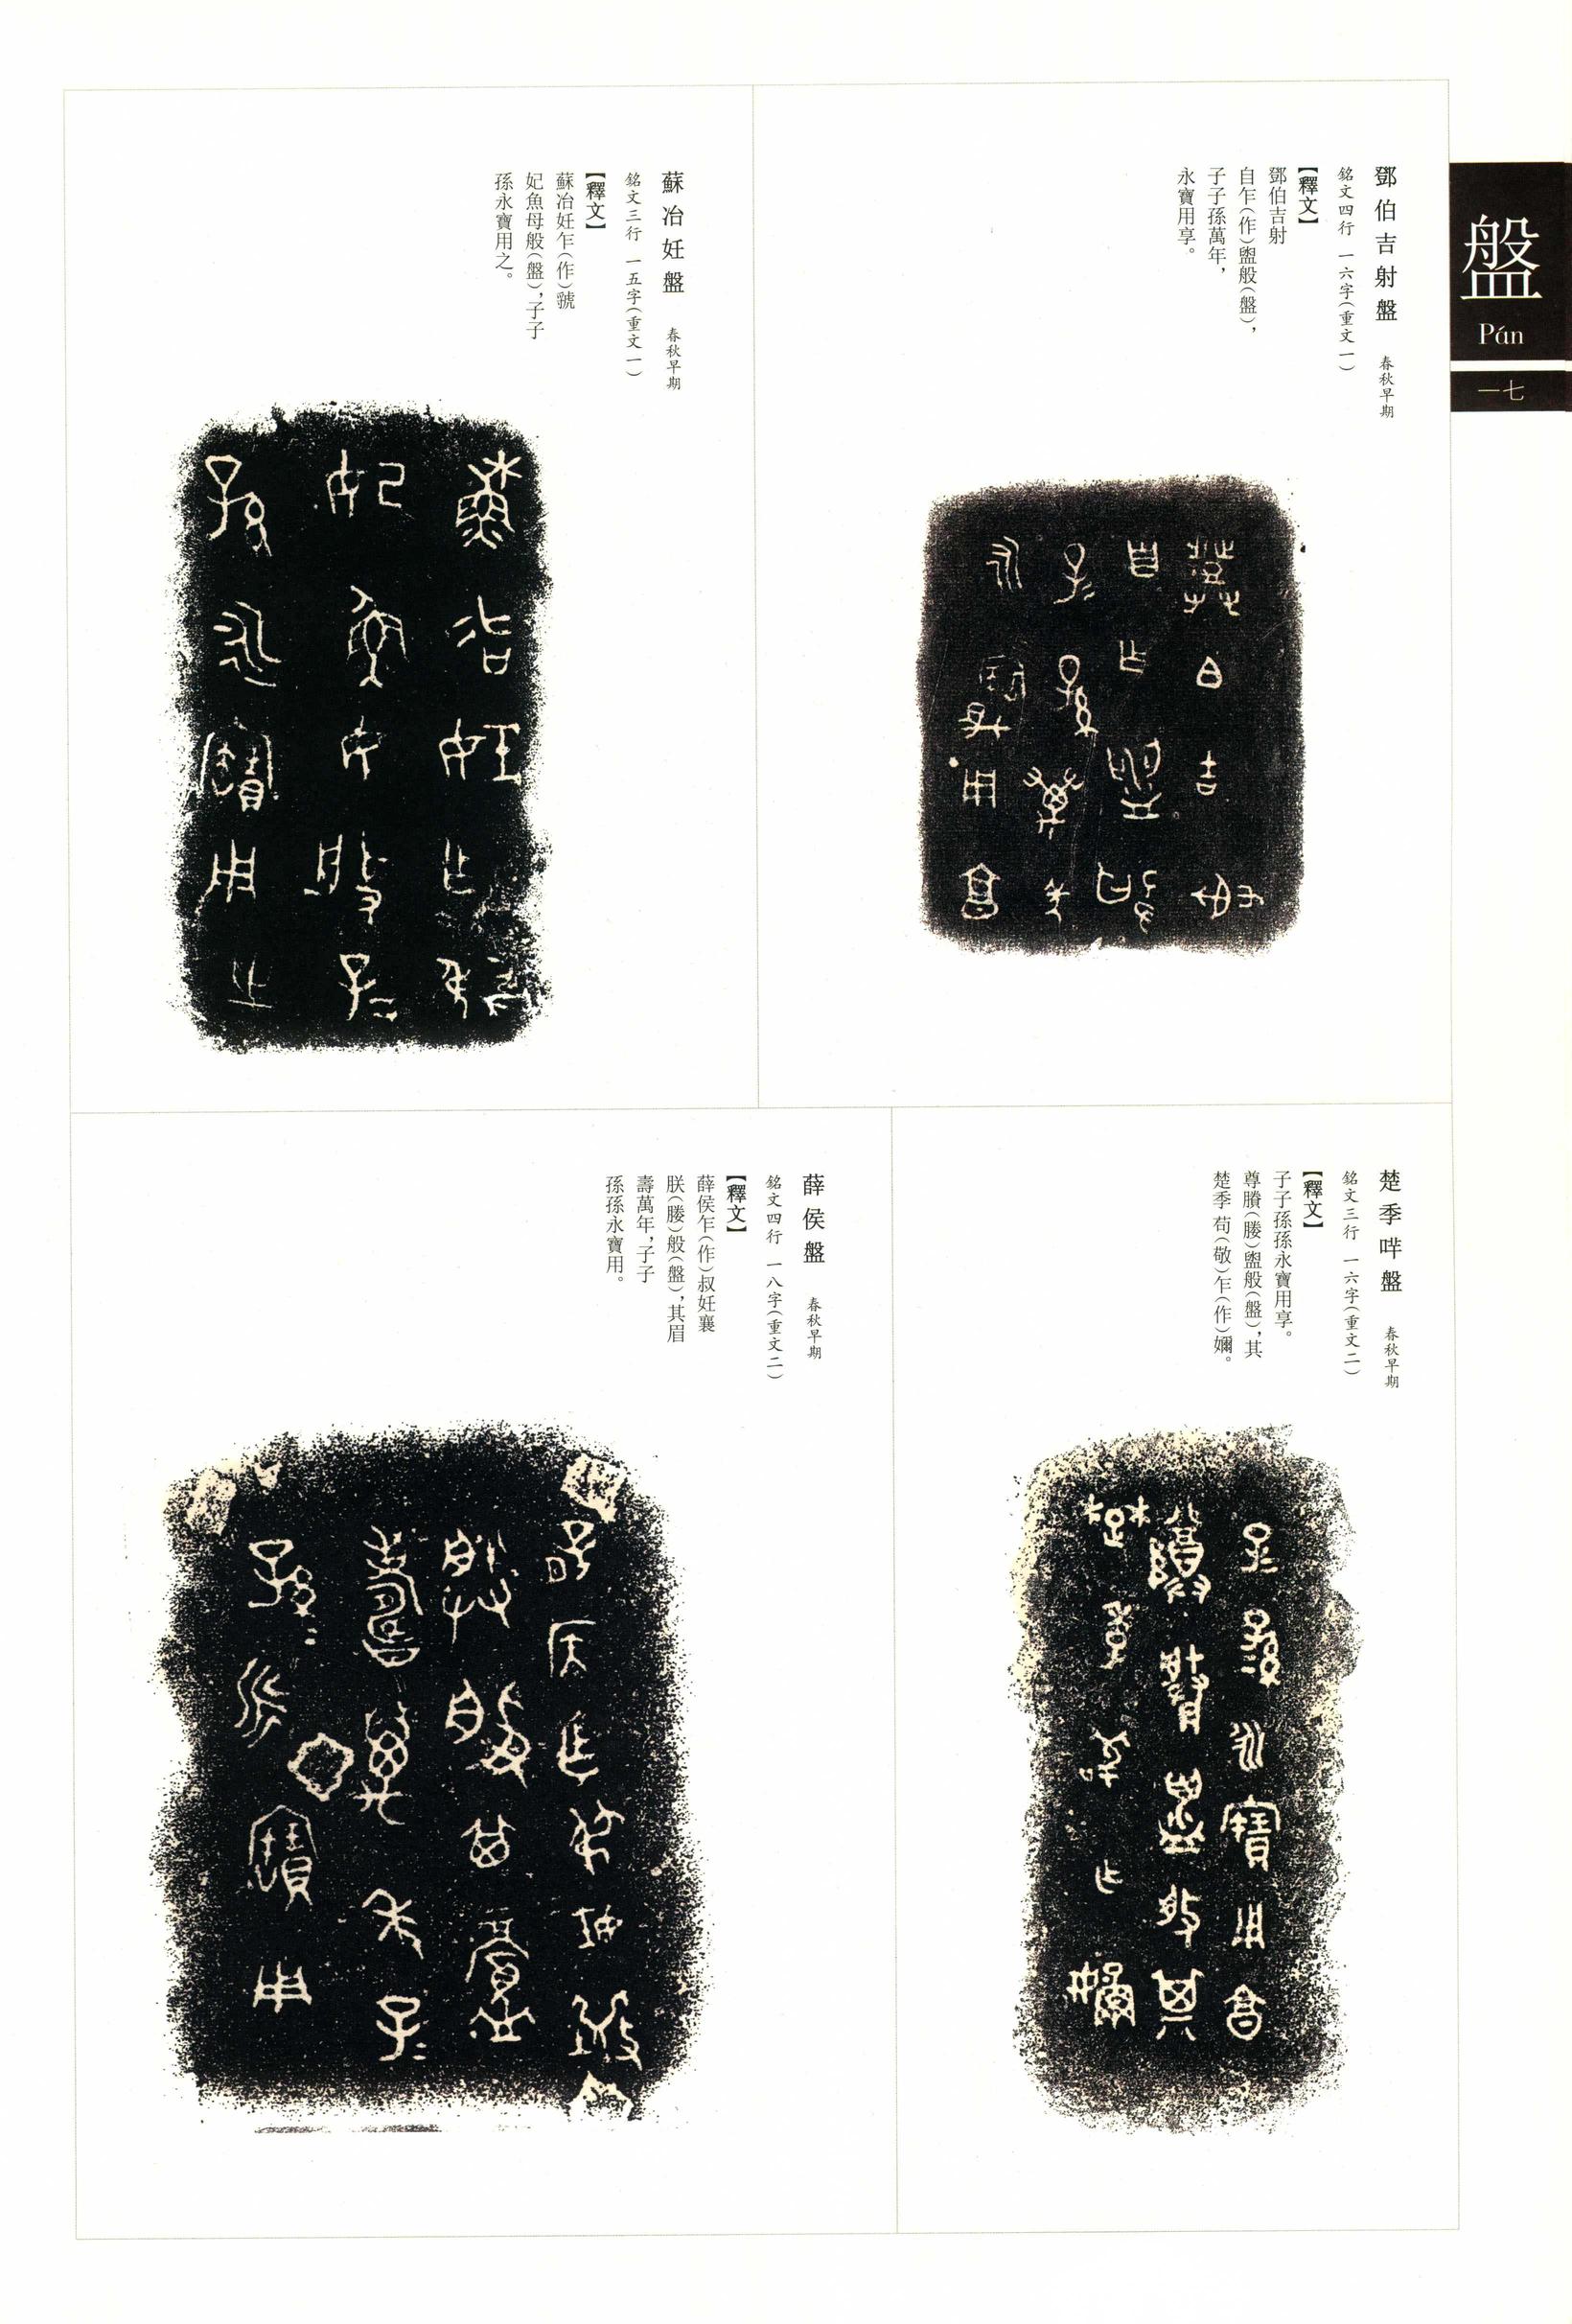 盤
Pán
一七
鄧伯吉射盤 春秋早期
銘文四行 一六字(重文一)
【釋文】
鄧伯吉射
自乍(作)盥般(盤),
子子孫萬年,
永寶用享。
蘇冶妊盤 春秋早期
銘文三行 一五字(重文一)
【釋文】
蘇冶妊乍(作)虢
妃魚母般(盤),子子
孫永寶用之。
楚季哶盤 春秋早期
銘文三行 一六字(重文二)
【釋文】
子子孫孫永寶用享。
尊賸(媵)盥般(盤),其
楚季苟(敬)乍(作)嬭。
薛侯盤 春秋早期
銘文四行 一八字(重文二)
【釋文】
薛侯乍(作)叔妊襄
朕(媵)般(盤),其眉
壽萬年,子子
孫孫永寶用。